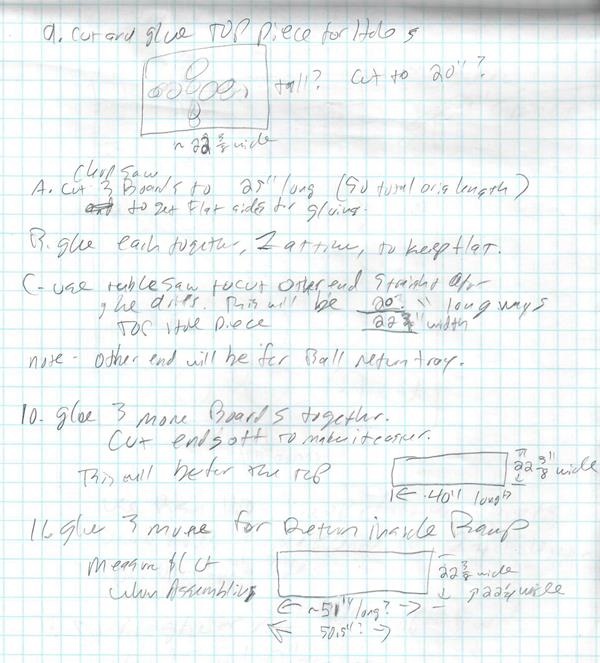 9. Cut and glue TOP piece for Holes
tall? Cut to 20"?
~ 22 3/8 wide
Chop saw
A. Cut 3 Boards to 25" long (50 total orig length)
to get Flat sides for gluing.
B. glue each together, 2 at time, to keep flat.
C- use table saw to cut other end straight after
glue dries. This will be 20? " long ways
TOP Hole piece 22 3/8" width
note - other end will be for Ball return tray.
10. glue 3 more Boards together.
Cut ends off to make it easier.
This will be for the top
22 3/8" wide
40" long
11. glue 3 more for Return inside Ramp
Measure & Cut
when Assembling
22 3/8 wide
22 1/4 wide
~51" long?
50.5"?